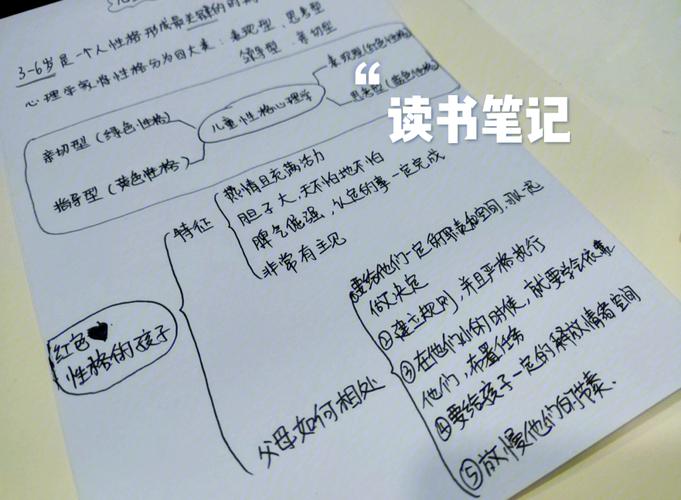 3-6岁是一个人性格形成最关键的时期
心理学家将性格分为四大类：表现型、思考型
领导型、亲切型
亲切型（绿色性格）
指导型（黄色性格）
儿童性格心理学
表现型（红色性格）
思考型（蓝色性格）
“
读书笔记
红色
性格的孩子
特征
热情且充满活力
胆子大，天不怕地不怕
脾气倔强，认定的事一定完成
非常有主见
父母如何相处
要给他们一定的
做决定
②建立规则，并且严格执行
③在他们小的时候，就要学会依靠
他们，布置任务
④要给孩子一定的释放情绪空间
⑤放慢他们的节奏.